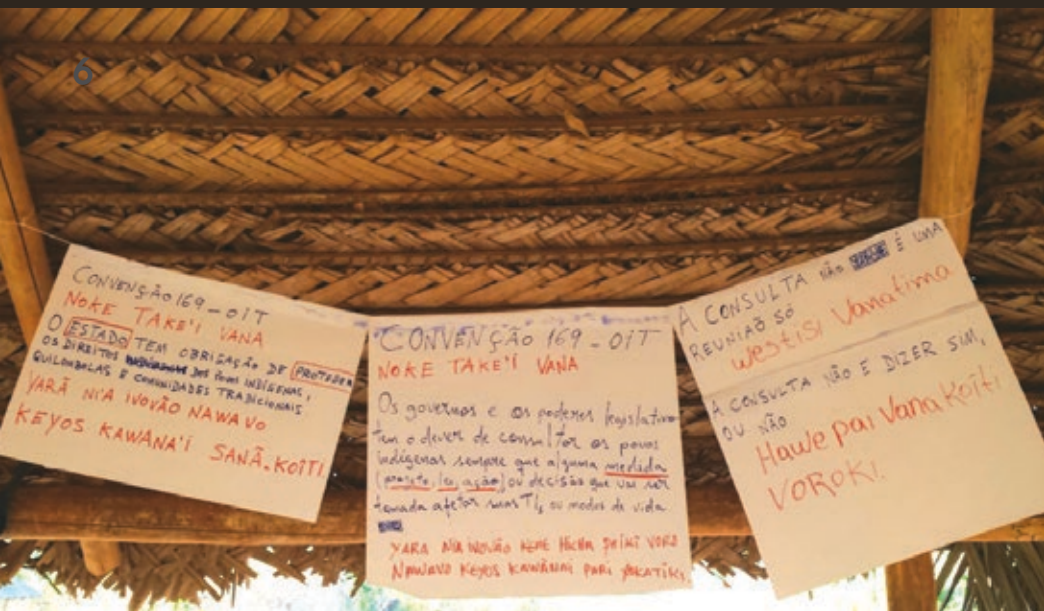 6
CONVENÇÃO 169 - OIT
NOKE TAKE'I VANA
O ESTADO TEM OBRIGAÇÃO DE PROTEGER
OS DIREITOS DOS POVOS INDÍGENAS,
QUILOMBOLAS E COMUNIDADES TRADICIONAIS
YARÃ NI'A IVOVÃO NAWAVO
KEYOS KAWÃNA'I SANÃ. KOITI
CONVENÇÃO 169 - OIT
NOKE TAKE'I VANA
Os governos e os poderes legislativo
tem o dever de consultar os povos
indígenas sempre que alguma medida
(projeto, lei, ação) ou decisão que vai ser
tomada afetar suas TIs ou modos de vida
YARA NIA IVOVÃO KENE HICHA
NAWAVO KEYOS KAWÃNAI PARI YAKATIKI
A CONSULTA NÃO É UMA
REUNIAÕ SÓ
Westisi Vanatima
A CONSULTA NÃO E DIZER SIM,
OU NÃO
Hawe pai Vana Koiti
VOROKI.